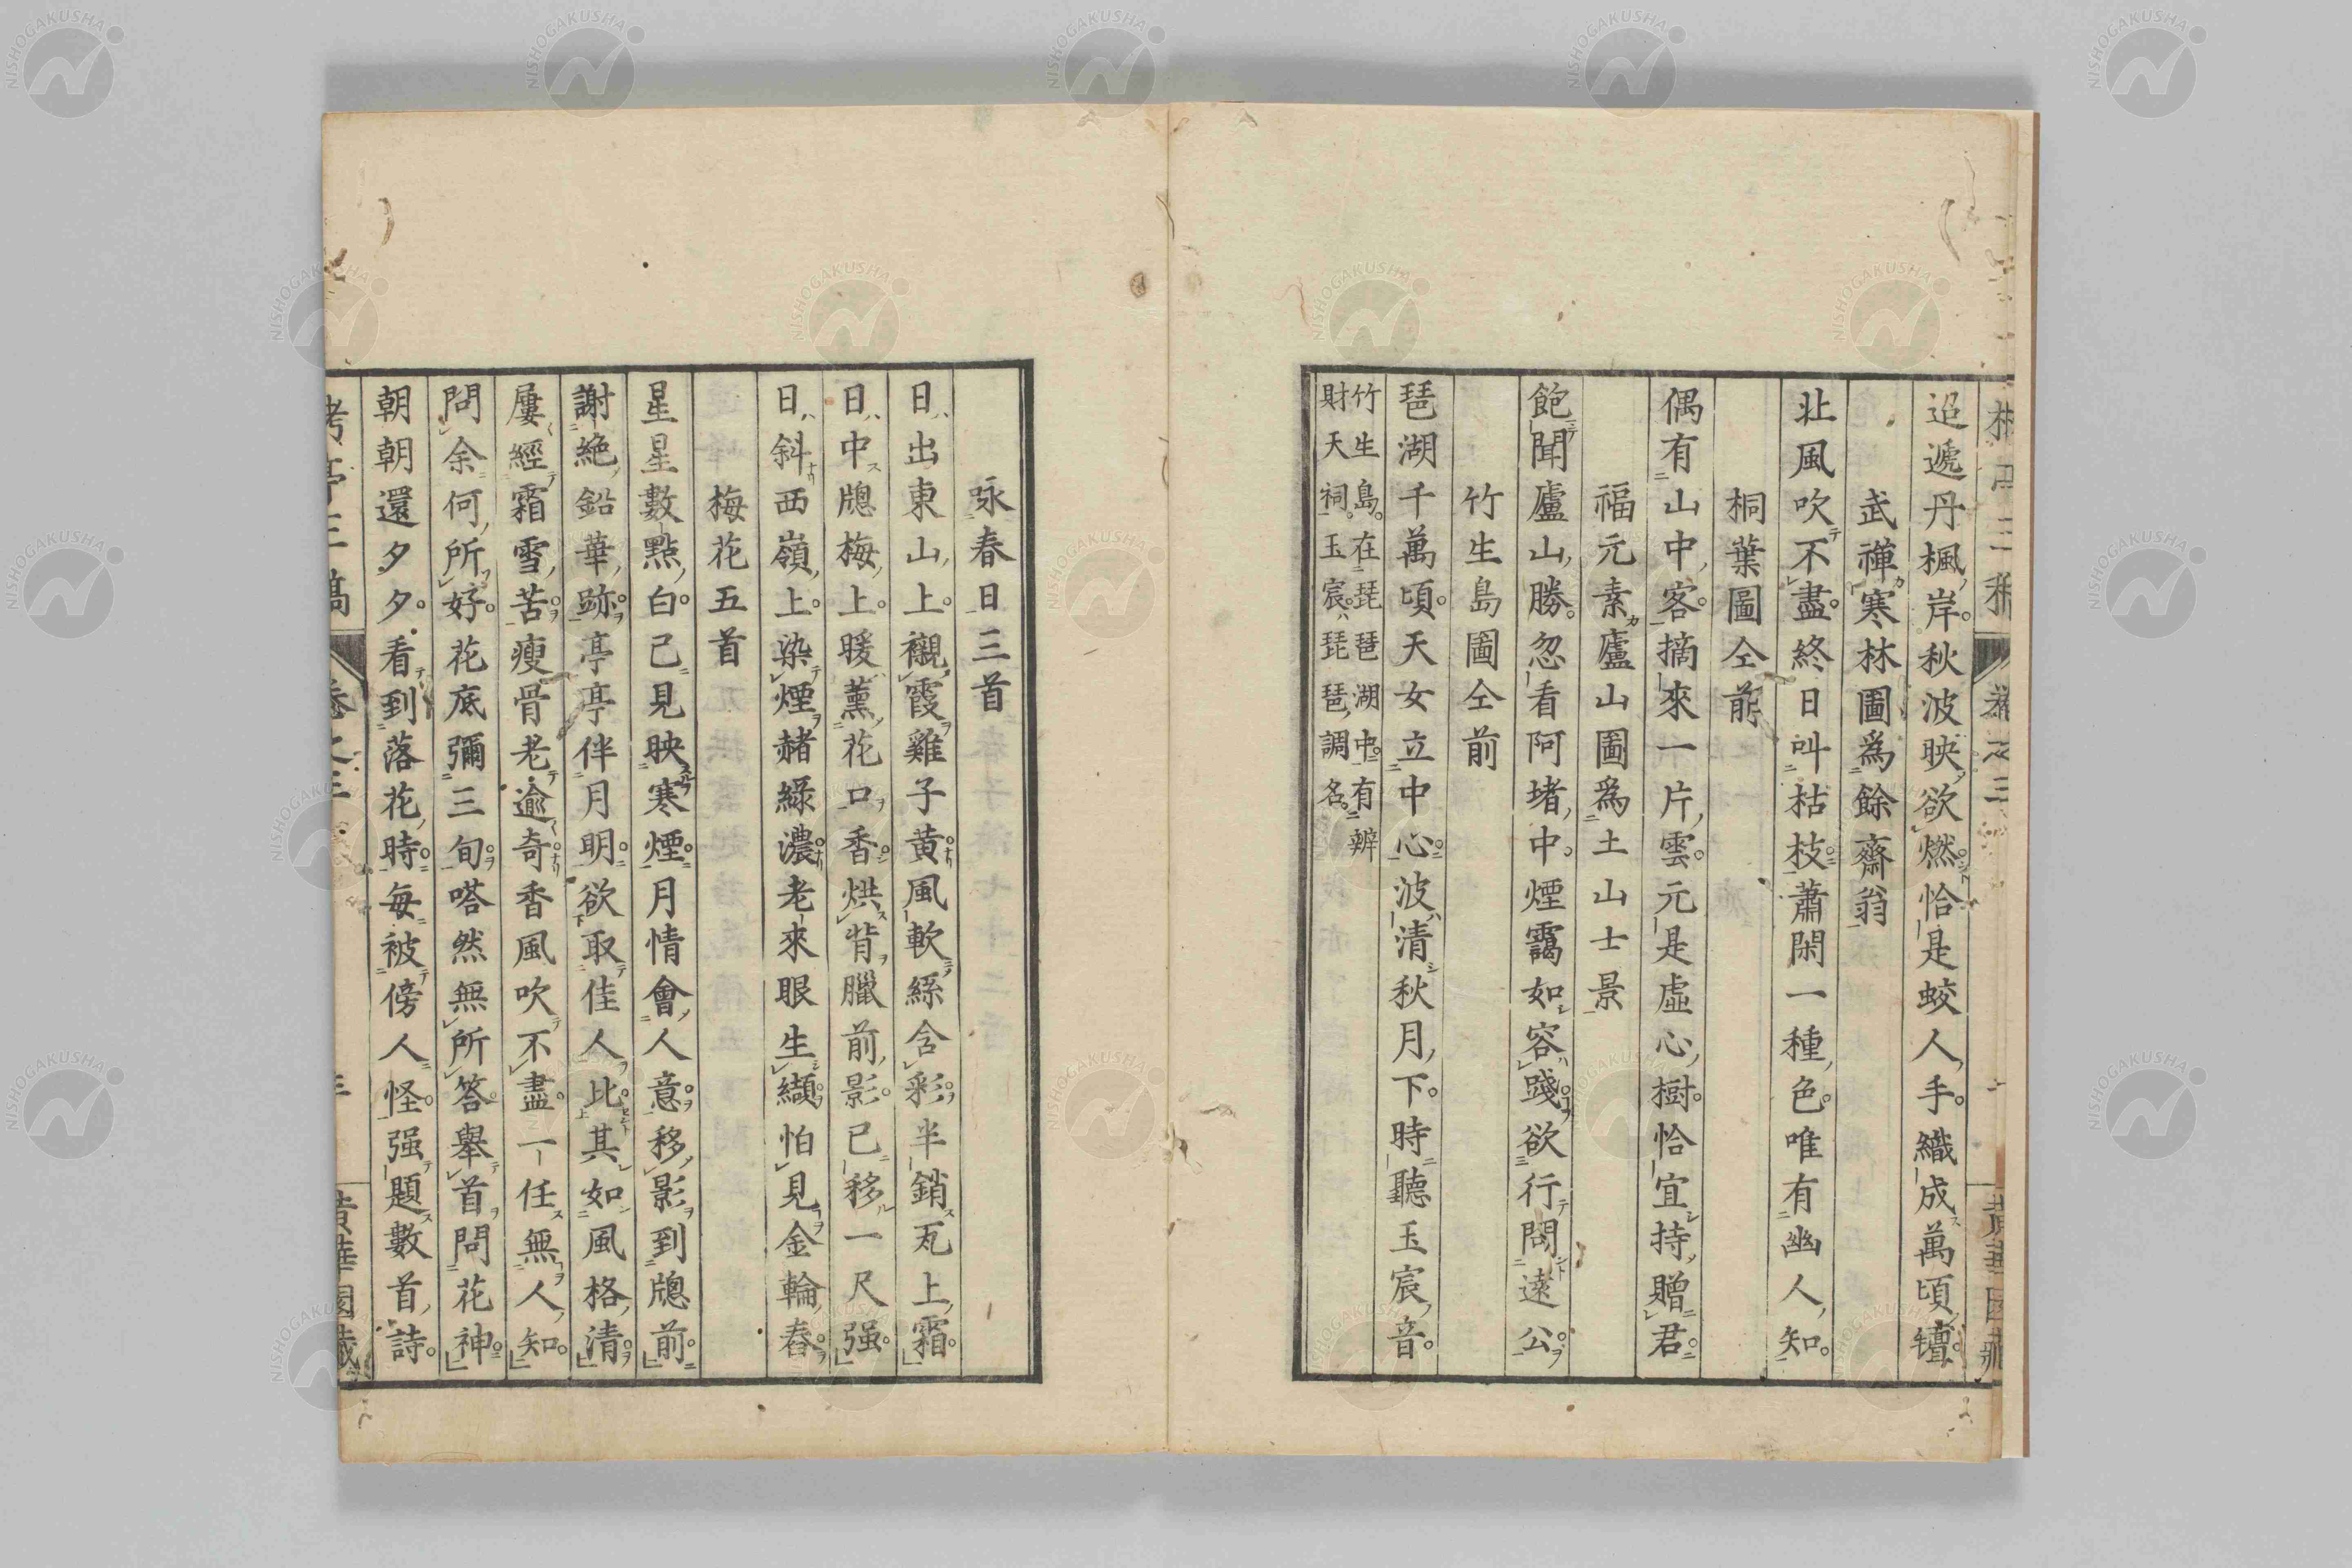 迢遞丹楓岸秋波映欲燃恰是蛟人手織成萬頃
武禪寒林圖爲餘齋翁
北風吹不盡終日叫枯枝蕭閑一種色唯有幽人知
桐葉圖仝前
偶有山中客摘來一片雲元是虛心樹恰宜持贈君
福元素廬山圖爲土山士景
飽聞廬山勝忽看阿堵中煙靄如容踐欲行問遠公
竹生島圖仝前
琶湖千萬頃天女立中心波清秋月下時聽玉宸音
竹生島在琵琶湖中有辨
財天祠玉宸琵琶調名
咏春日三首
日出東山上襯霞雞子黄風軟絲含彩半銷瓦上霜
日中牕梅上暖薰花口香烘背臘前影已移一尺强
日斜西嶺上染煙赭綠濃老來眼生纈怕見金輪舂
梅花五首
星星數點白已見映寒煙月情會人意移影到牕前
謝絶鉛華跡亭亭伴月明欲取佳人比其如風格清
屢經霜雪苦瘦骨老逾奇香風吹不盡一任無人知
問余何所好花底彌三旬嗒然無所答舉首問花神
朝朝還夕夕看到落花時每被傍人怪强題數首詩